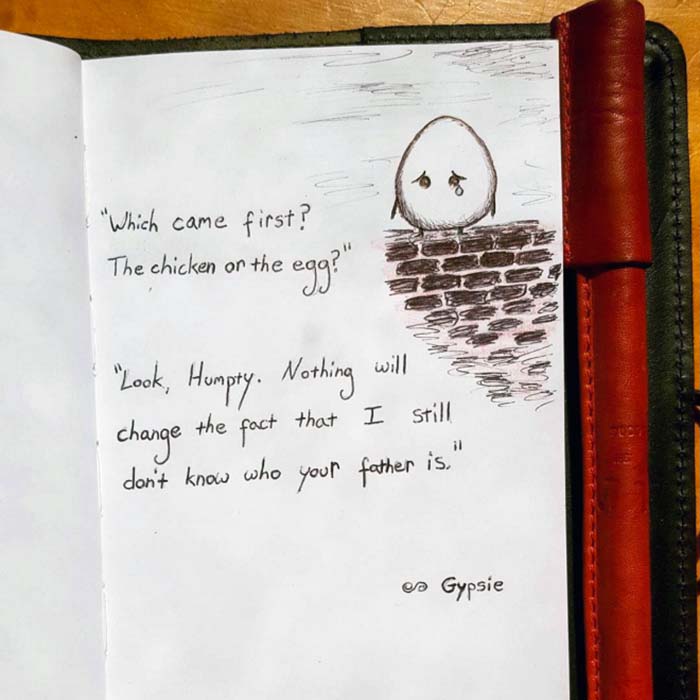 "Which came first?
The chicken or the egg?"
"Look, Humpty. Nothing will
change the fact that I still
don't know who your father is."
Gypsie